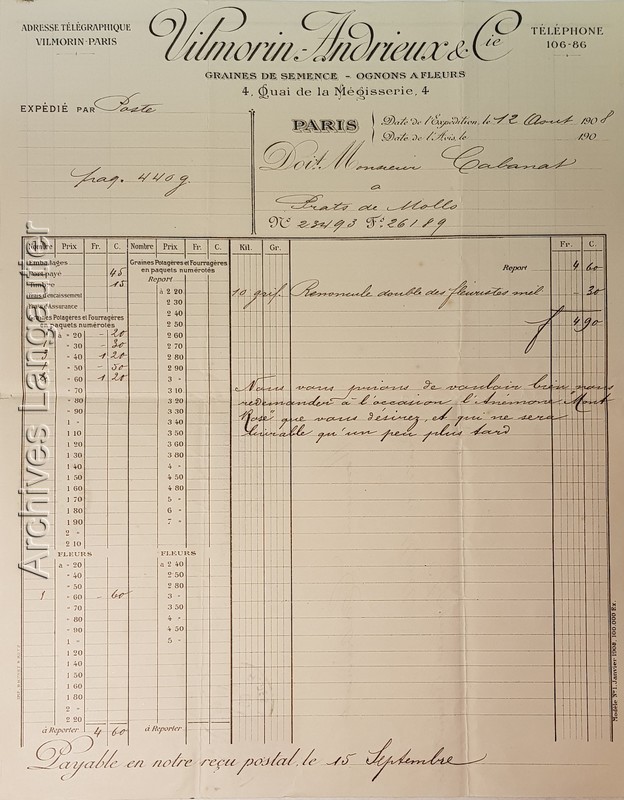 ADRESSE TÉLÉGRAPHIQUE
VILMORIN-PARIS
Vilmorin-Andrieux & Cie
TÉLÉPHONE
106-86
GRAINES DE SEMENCE - OGNONS A FLEURS
4, Quai de la Mégisserie, 4
EXPÉDIÉ PAR Poste
PARIS
Date de l'Expédition, le 12 Aout 1908
Date de l'Avis, le 190
Doit Monsieur Cabanat
à
Prats de Mollo
frag. 440g
No 23493 Fo 26189
Nombre Prix Fr. C. Nombre Prix Fr. C. Kil. Gr. Fr. C.
Emballages
Port payé 45
Timbre 15
Frais d'encaissement
d'Assurance
Graines Potagères et Fourragères
en paquets numérotés
à - 20 - 20
- 30 - 30
- 40 1 20
- 50 - 50
- 60 1 20
- 70
- 80
- 90
1 -
1 10
1 20
1 30
1 40
1 50
1 60
1 70
1 80
1 90
2 -
2 10
FLEURS
à - 20
- 40
- 50
1 - 60 - 60
- 70
- 80
- 90
1 -
1 20
1 40
1 50
1 60
1 80
2 -
2 20
à Reporter 4 60
Graines Potagères et Fourragères
en paquets numérotés
Report
à 2 20
2 30
2 40
2 50
2 60
2 70
2 80
2 90
3 -
3 10
3 20
3 30
3 40
3 50
3 60
3 80
4 -
4 50
4 80
5 -
6 -
7 -
FLEURS
à 2 40
2 50
2 80
3 -
3 50
4 -
4 50
5 -
à Reporter
Report 4 60
10 grif. Renoncule double des fleuristes mél - 30
4 90
Nous vous prions de vouloir bien nous
redemander à l'occasion l'Anémone "Mont
Rose" que vous désirez, et qui ne sera
livrable qu'un peu plus tard
Modèle No 1. Janvier 1908, 100.000 Ex.
Payable en notre reçu postal, le 15 Septembre
Archives Langaudier